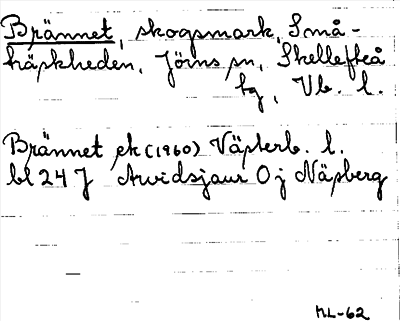 Brännet, skogsmark, Små-
träskheden, Jörns sn, Skellefteå
tg, Vb. l.
Brännet ek (1960) Västerb. l.
bl 24 J Arvidsjaur 0 j Näsberg
ML-62